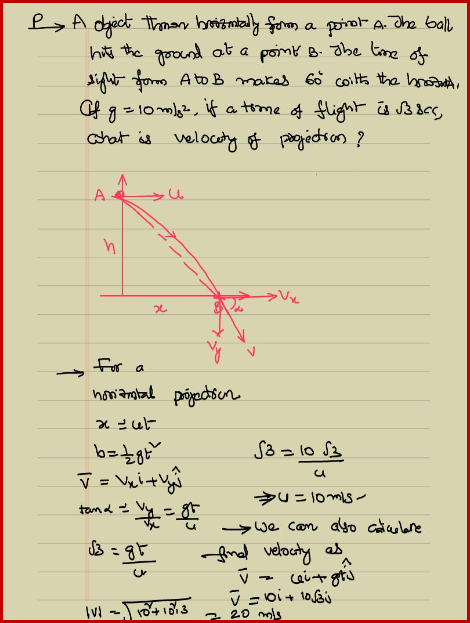 P → A object thrown horizontally from a point A. The ball
hits the ground at a point B. The line of
sight from A to B makes 60° with the horizontal,
If g = 10 m/s², if a time of flight is √3 sec,
what is velocity of projection ?
A u
h
x B α Vx
Vy V
→ For a
horizontal projection
x = ut
h = 1/2 gt²
V̅ = Vxi + Vyĵ
tanα = Vy/Vx = gt/u
√3 = gt/u
|V| = √10²+10²·3 = 20 m/s
√3 = 10√3/u
⇒ u = 10 m/s
→ we can also calculate
final velocity as
V̅ = ui + gtĵ
V̅ = 10i + 10√3j